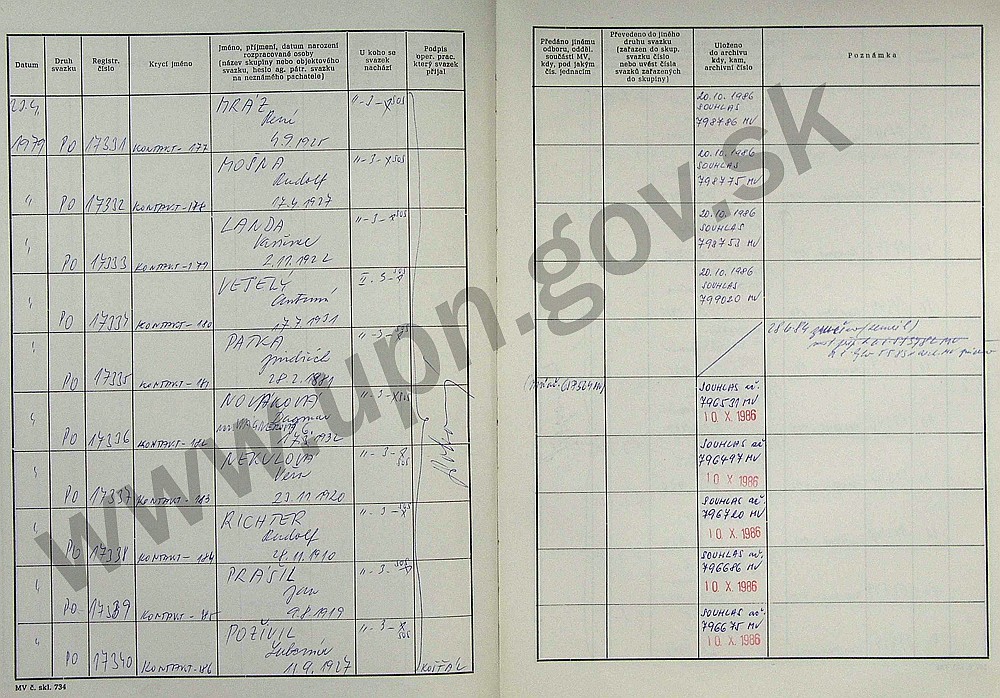 Datum
Druh svazku
Registr. číslo
Krycí jméno
Jméno, příjmení, datum narození
rozpracované osoby
(název skupiny nebo objektového
svazku, heslo ag. pátr. svazku
na neznámého pachatele)
U koho se
svazek
nachází
Podpis
oper. prac.
který svazek
přijal
1979 PO 17331 KONTAKT-177
MRÁZ
René
4.9.1925
II-3-
" PO 17332 KONTAKT-178
MOŠNA
Rudolf
17.4.1927
II-3-
" PO 17333 KONTAKT-179
LANDA
2.11.1922
II-3-
" PO 17334 KONTAKT-180
VESELÝ
Antonín
17.7.1931
" PO 17335 KONTAKT-181
PATKA
Jindřich
II-3-
" PO 17336 KONTAKT-182
NOVÁKOVÁ
Dagmar
II-3-
" PO 17337 KONTAKT-183
NEKULOVÁ
Věra
23.11.1920
II-3-
" PO 17338 KONTAKT-184
RICHTER
Rudolf
28.11.1910
II-3-
" PO 17339 KONTAKT-185
PRÁŠIL
Jan
9.8.1919
II-3-
" PO 17340 KONTAKT-186
POŽIVIL
Lubomír
11.9.1927
II-3-
KOŠŤÁL
MV č. skl. 734
Předáno jinému
odboru, odděl.
součásti MV,
kdy, pod jakým
čís. jednacím
Převedeno do jiného
druhu svazku
(zařazen do skup.
svazku číslo
nebo uvést čísla
svazků zařazených
do skupiny)
Uloženo
do archivu
kdy, kam,
archivní číslo
Poznámka
20.10.1986
SOUHLAS
798786 MV
20.10.1986
SOUHLAS
798775 MV
20.10.1986
SOUHLAS
798753 MV
20.10.1986
SOUHLAS
799020 MV
SOUHLAS ač.
796531 MV
10. X. 1986
SOUHLAS ač.
796497 MV
10. X. 1986
SOUHLAS ač.
796720 MV
10. X. 1986
SOUHLAS ač.
796686 MV
10. X. 1986
SOUHLAS ač.
796675 MV
10. X. 1986
www.upn.gov.sk